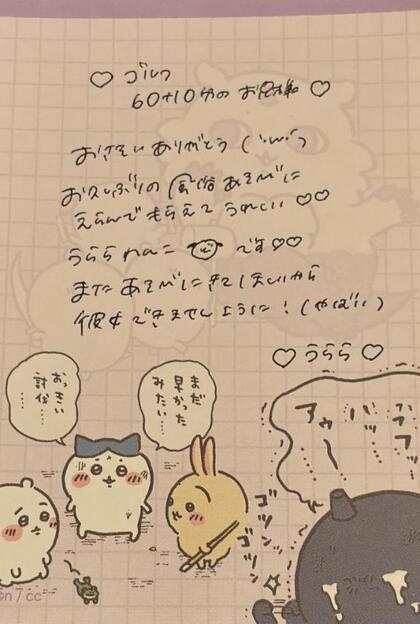 ♡ ゴルフ
60+10分のお兄様 ♡
おさそいありがとう(˙꒳˙)
お久しぶりの風俗あそびに
えらんでもらえて うれしい ♡♡
うららわんこ です♡♡
また あそびにきてほしいから
彼女できませんように!(やばい)
♡ うらら ♡
まだ
早かった
みたい…
おっきい
討伐…
……
フラフッ
バッ
アゥ〜
ゴソ
ゴソ
n / cc